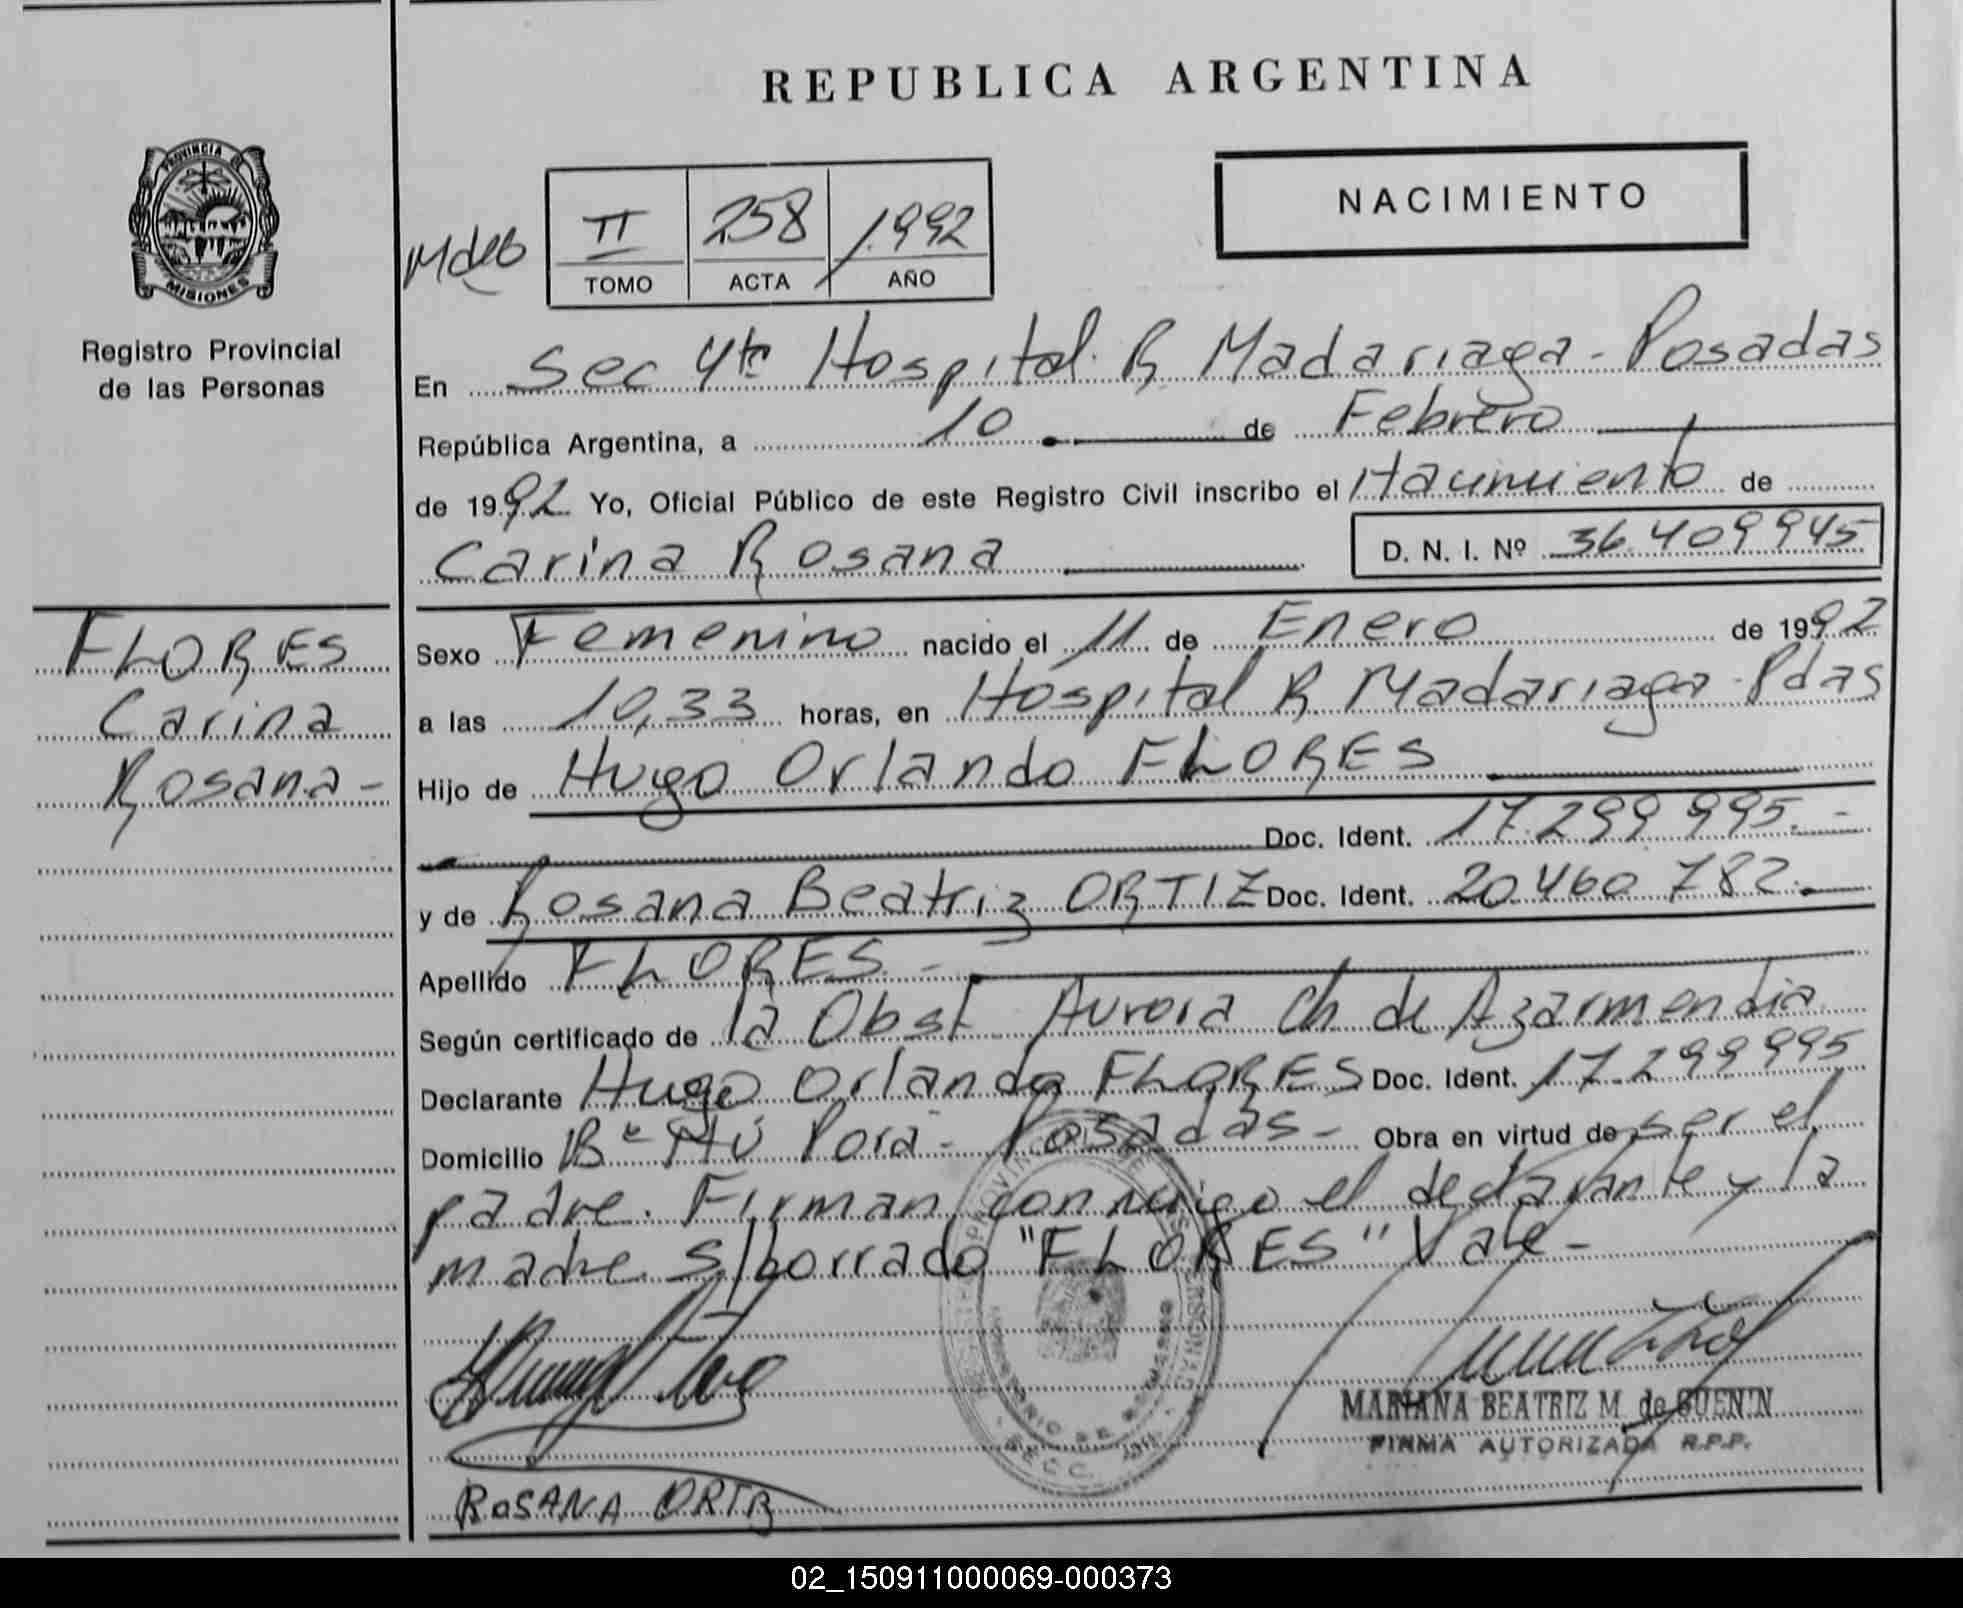 REPUBLICA ARGENTINA
NACIMIENTO
PROVINCIA DE
MISIONES
Registro Provincial
de las Personas
II 258 1992
TOMO ACTA AÑO
En Sec 4ta Hospital R Madariaga - Posadas
República Argentina, a 10 de Febrero
de 1992 Yo, Oficial Público de este Registro Civil inscribo el Nacimiento de
Carina Rosana D. N. I. Nº 36.409945
FLORES
Carina
Rosana -
Sexo Femenino nacido el 11 de Enero de 1992
a las 10,33 horas, en Hospital R Madariaga - Pdas
Hijo de Hugo Orlando FLORES
Doc. Ident. 17.299.995.-
y de Rosana Beatriz ORTIZ Doc. Ident. 20.460.782.-
Apellido FLORES -
Según certificado de la Obst Aurora Ch de Azarmendia
Declarante Hugo Orlando FLORES Doc. Ident. 17.299995
Domicilio Bº Ñú Porá - Posadas - Obra en virtud de ser el
padre. Firman conmigo el declarante y la
madre. S/borrado "FLORES" Vale -
MARIANA BEATRIZ M. de GUENIN
FIRMA AUTORIZADA R.P.P.
ROSANA ORTIZ
02_150911000069-000373